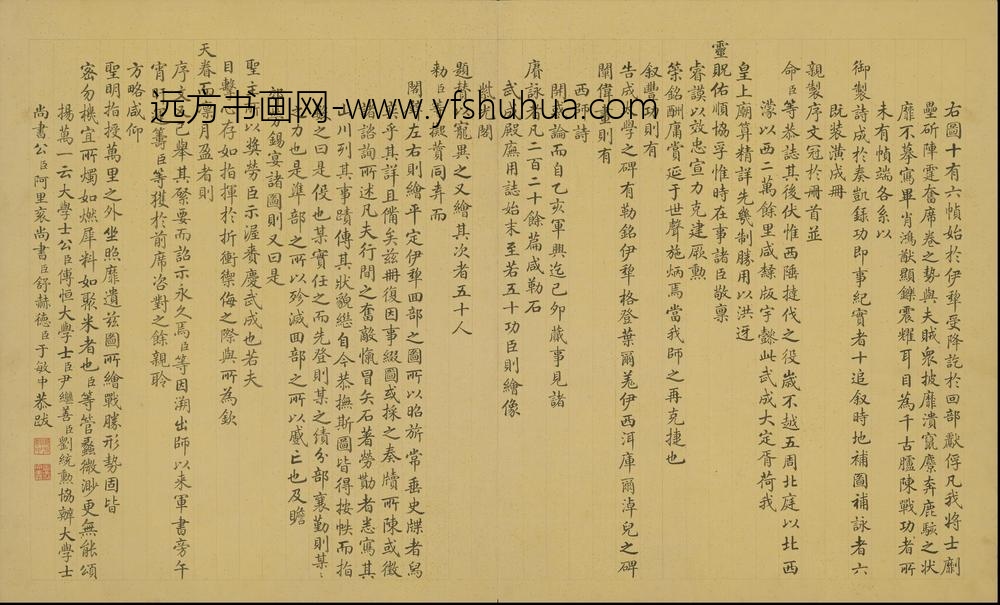 右圖十有六幀始於伊犂受降訖於回部獻俘凡我將士劘
壘斫陣霆奮席卷之勢與夫賊衆披靡潰竄麏奔鹿駭之狀
靡不摹寫畢肖鴻猷顯鑠震耀耳目為千古臚陳戰功者所
未有幀端各系以
御製詩成於奏凱錄功即事紀實者十追叙時地補圖補詠者六
既裝潢成冊
親製序文冠於冊首並
命臣等恭誌其後伏惟西陲撻伐之役歲不越五周北庭以北西
濛以西二萬餘里咸隸版宇懿此武成大定胥荷我
皇上廟算精詳先幾制勝用以洪迓
靈貺佑順協孚惟時在事諸臣敬禀
睿謨以效忠宣力克建厥勲
榮銘酬庸賞延于世聲施炳焉當我師之再克捷也
叙豐功則有
告成太學之碑有勒銘伊犂格登葉爾羗伊西洱庫爾淖兒之碑
闡偉畫則有
西師詩
開惑論而自乙亥軍興迄己卯蕆事見諸
賡詠者凡二百二十餘篇咸勒石
武成殿廡用誌始末至若五十功臣則繪像
紫光閣
題贊以寵異之又繪其次者五十人
勅臣等擬贊同弆而
閣之左右則繪平定伊犂回部之圖所以昭旂常垂史牒者舄
乎其詳且備矣兹冊復因事綴圖或採之奏牘所陳或徵
諮詢所述凡夫行間之奮敵愾冒矢石著勞勩者悉寫其
山川列其事蹟傳其狀貌繼自今恭撫斯圖皆得按帙而指
之曰是役也某實任之而先登則某之績分部襄勤則某
力也是準部之所以殄滅回部之所以底亡也及瞻
勞錫宴諸圖則又曰是
聖主所以奬勞臣示渥眷慶武成也若夫
目擊心存如指揮於折衝禦侮之際與所為欽
天眷而凛月盈者則
序言已舉其綮要而詔示永久焉臣等因溯出師以来軍書旁午
宵籌臣等獲於前席咨對之餘親聆
方略咸仰
聖明指授萬里之外坐照靡遺兹圖所繪戰勝形勢固皆
密勿機宜所燭如燃犀料如聚米者也臣等管蠡微渺更無能頌
揚萬一云大學士公臣傅恒大學士臣尹繼善臣劉統勲協辦大學士
尚書公臣阿里衮尚書臣舒赫德臣于敏中恭跋
远方书画网-www.yfshuhua.com